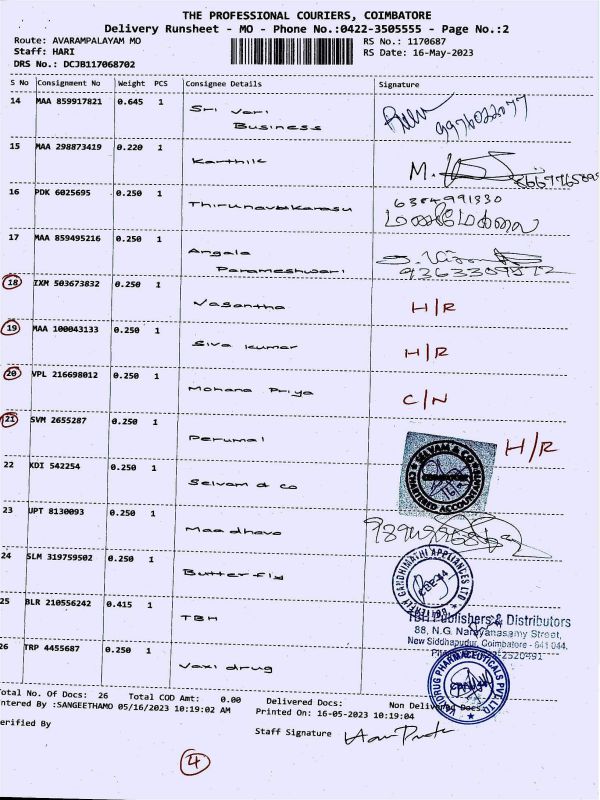 THE PROFESSIONAL COURIERS, COIMBATORE
Delivery Runsheet - MO - Phone No.:0422-3505555 - Page No.:2
Route: AVARAMPALAYAM MO RS No.: 1170687
Staff: HARI RS Date: 16-May-2023
DRS No.: DCJB117068702
S No Consignment No Weight PCS Consignee Details Signature
14 MAA 859917821 0.645 1 Sri Vari
Business
15 MAA 298873419 0.220 1 Karthik M.
16 PDK 6025695 0.250 1 Thirunavakarasu 6384991330
17 MAA 859495216 0.250 1 Angala
Parameshwari
18 IXM 503673832 0.250 1 Vasantha H/R
19 MAA 100043133 0.250 1 Siva kumar H/R
20 VPL 216698012 0.250 1 Mohana Priya C/N
21 SVM 2655287 0.250 1 Perumal H/R
22 KDI 542254 0.250 1 Selvam & co
SELVAM & CO
CHARTERED ACCOUNTANTS
23 UPT 8130093 0.250 1 Maadhava
24 SLM 319759502 0.250 1 Butterfly
BUTTERFLY GANDHIMATHI APPLIANCES LTD
25 BLR 210556242 0.415 1 TBH
TBH Publishers & Distributors
88, N.G. Narayanasamy Street,
New Siddhapudur, Coimbatore - 641 044.
26 TRP 4455687 0.250 1 Vaxi drug
PHARMACEUTICALS PVT LTD
Total No. Of Docs: 26 Total COD Amt: 0.00 Delivered Docs: Non Delivered Docs:
ntered By :SANGEETHAMO 05/16/2023 10:19:02 AM Printed On: 16-05-2023 10:19:04
erified By Staff Signature
4